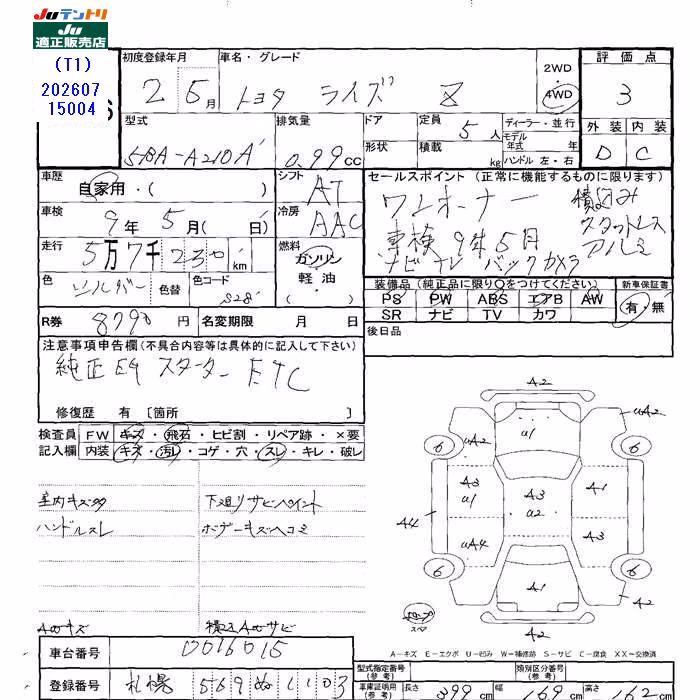 Juテントリ
Ju
適正販売店
(T1)
202607
15004
初度登録年月 2 5月
車名・グレード トヨタ ライズ Z
2WD
4WD
評価点 3
外装 内装
D C
型式 5BA-A210A
排気量 0.99cc
ドア
形状
定員 5人
積載 kg
ディーラー・並行
モデル年式 年
ハンドル 左・右
車歴 自家用・( )
シフト AT
車検 9年5月( 日)
冷房 AAC
走行 5万7千230km
燃料 ガソリン・軽油
色 シルバー
色替
色コード S28
セールスポイント (正常に機能するものに限ります)
ワンオーナー 積込み
スタットレス
車検 9年5月 アルミ
ナビ テレ バックカメラ
装備品(純正品に限り○をつけてください)
新車保証書
PS PW ABS エアB AW
SR ナビ TV カワ
有・無
R券 8790円
名変期限 月 日
後日品
注意事項申告欄(不具合内容等は具体的に記入して下さい)
純正Eg スターター ETC
修復歴 有 [箇所 ]
検査員 FW キズ・飛石・ヒビ割・リペア跡・×要
記入欄 内装 キズ・汚れ・コゲ・穴・スレ・キレ・破レ
室内キズ多
ハンドルスレ
下廻りサビペイント
ボデーキズヘコミ
A2
uA2
A2
u1
uA2
6
6
A3
u1
A3
u2
A1
A4
uA4
A3
6
6
A1
A2
A2
スペア
A-キズ E-エクボ U-凹み W-補修跡 S-サビ C-腐食 XX-交換済
車台番号 0016015
登録番号 札幌 569 ぬ 1103
型式指定番号(参考)
類別区分番号(参考)
車庫証明用(参考)
長さ 399cm
幅 169cm
高さ 162cm